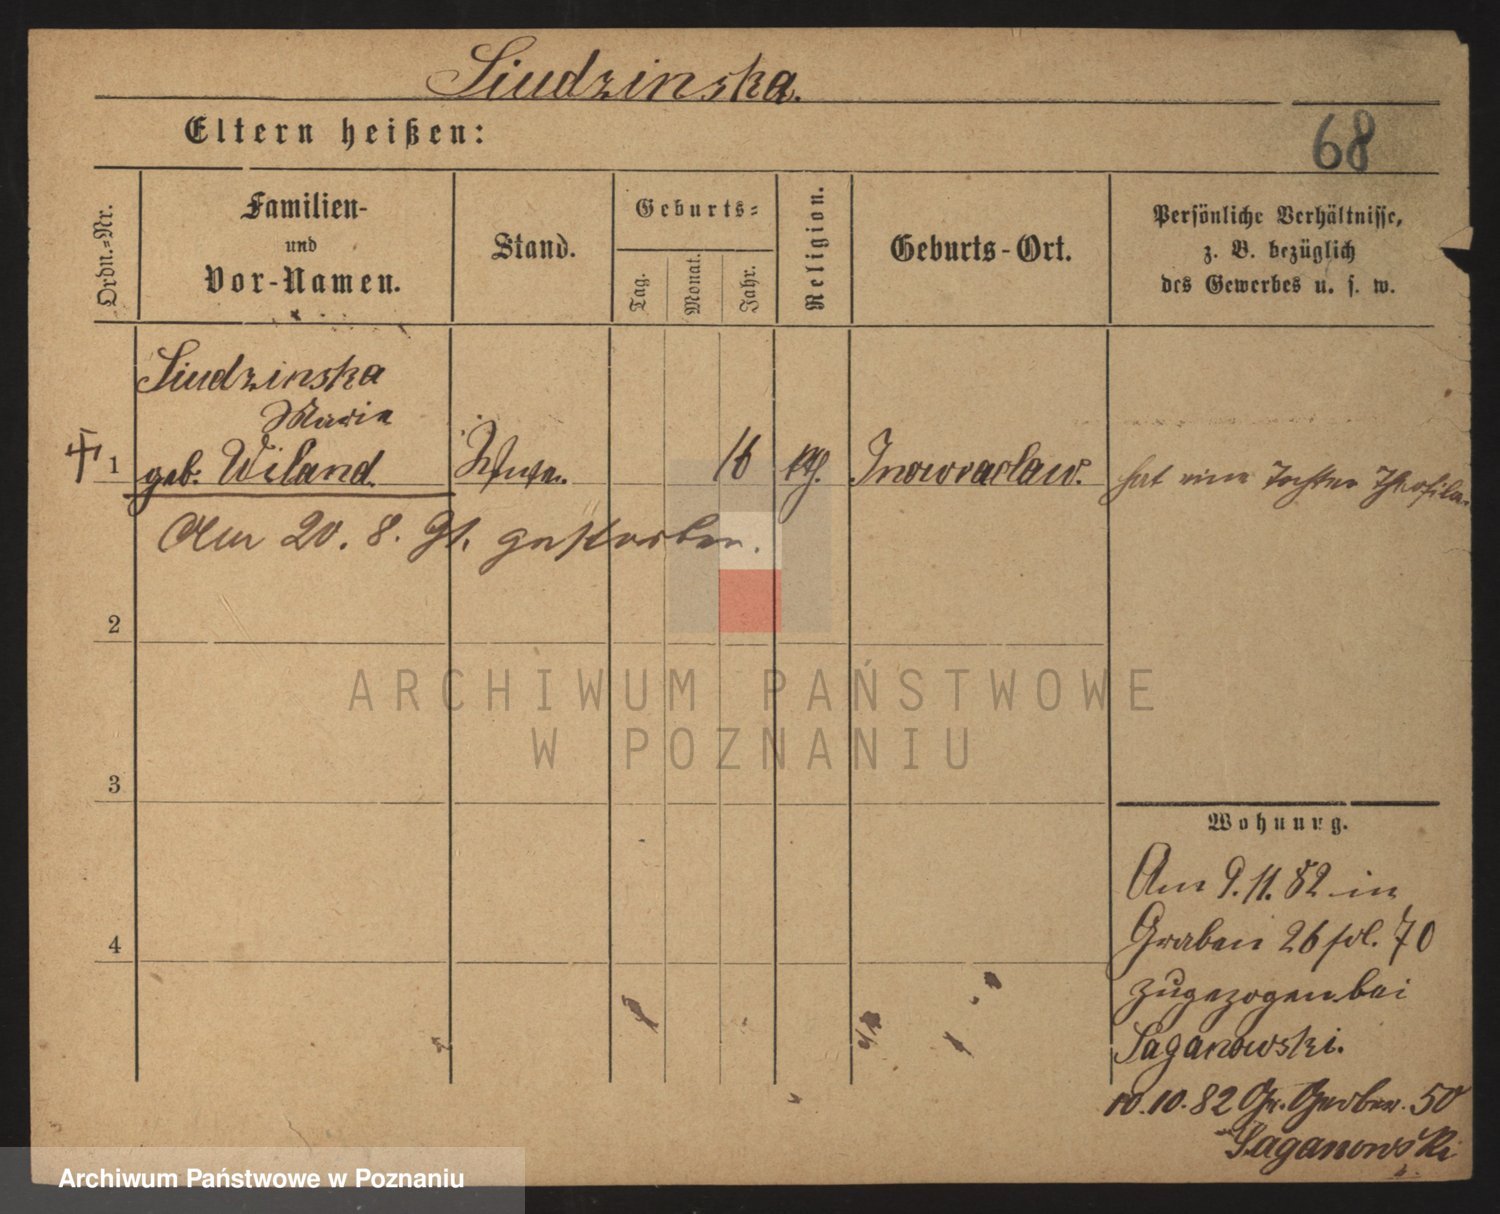 Siudzinska.
Eltern heißen:
68
Ordn.-Nr.
Familien-
und
Vor-Namen.
Stand.
Geburts-
Tag.
Monat.
Jahr.
Religion.
Geburts-Ort.
Persönliche Verhältnisse,
z. B. bezüglich
des Gewerbes u. s. w.
Siudzinska
Marie
1 geb. Wiland. Wwe. 16 kth. Inowraclaw. hat eine Tochter Theofila.
Am 20. 8. 91. gestorben.
2
ARCHIWUM PAŃSTWOWE
W POZNANIU
3
Wohnung.
Am 9.11.82 in
4
Graben 26 fol. 70
zugezogen bei
Saganowski.
10.10.82 Gr. Gerber. 50
Saganowski
Archiwum Państwowe w Poznaniu